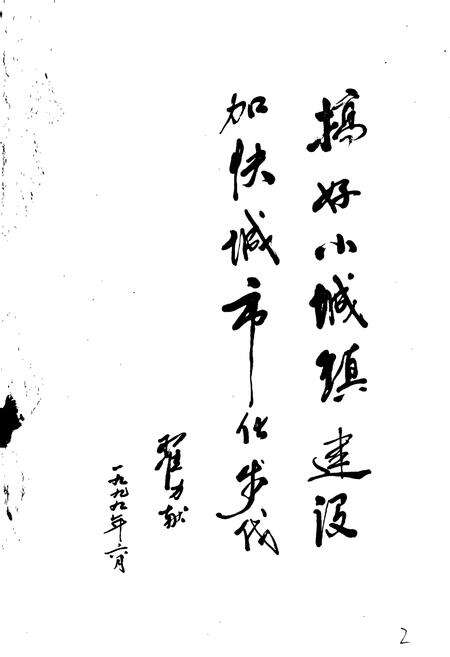 搞好小城镇建设
加快城市化步伐
翟力献
一九九九年六月
2